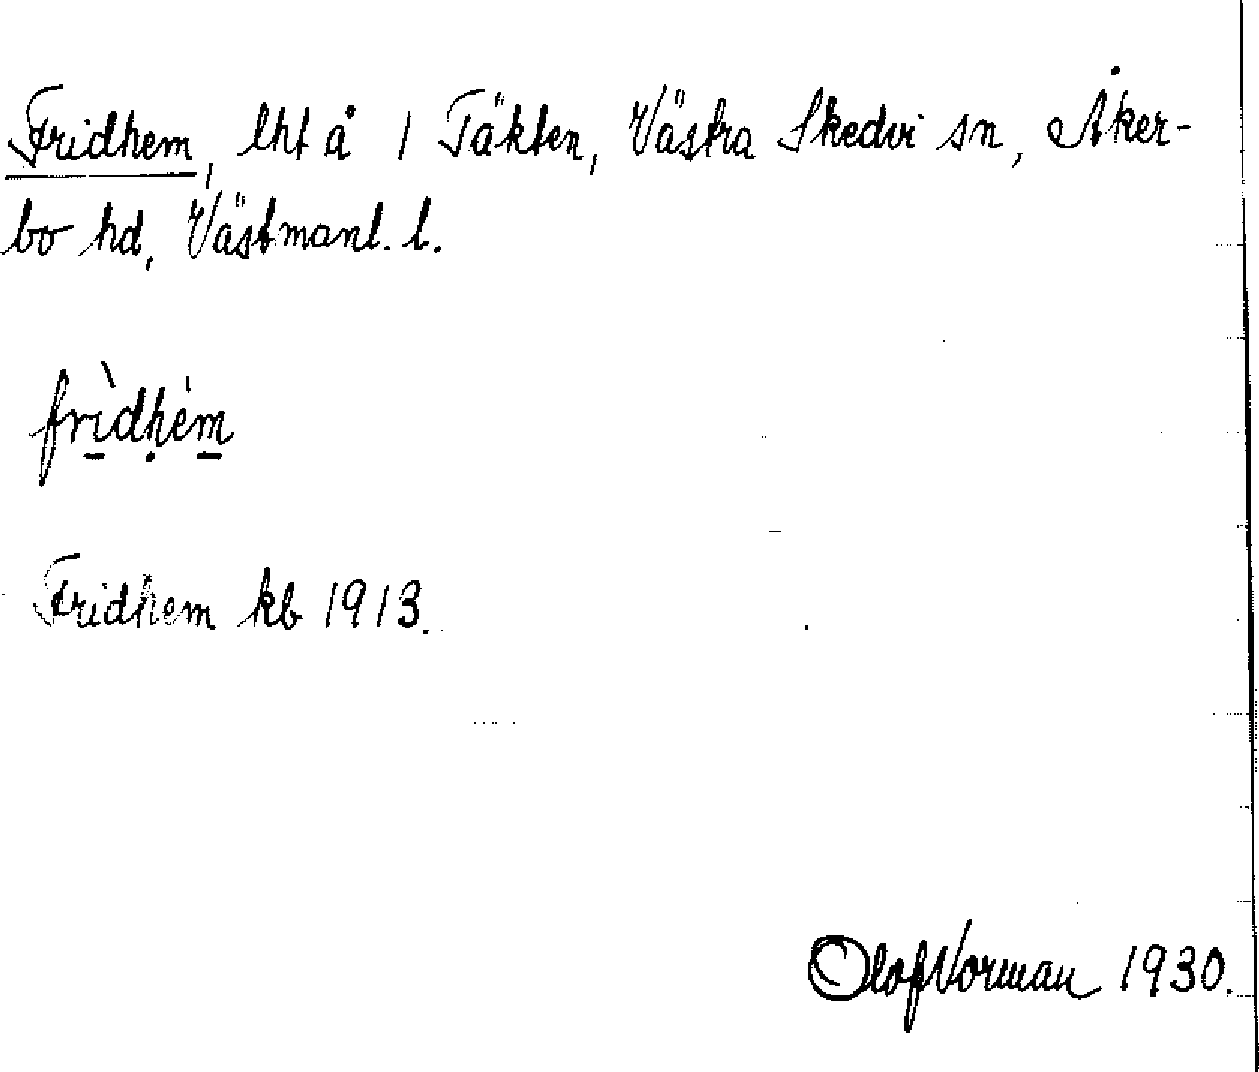 Fridhem, lht å 1 Täkten, Västra Skedvi sn, Åker-
bo hd, Västmanl. l.
frìdḥém
Fridhem kb 1913.
Olof Norman 1930.